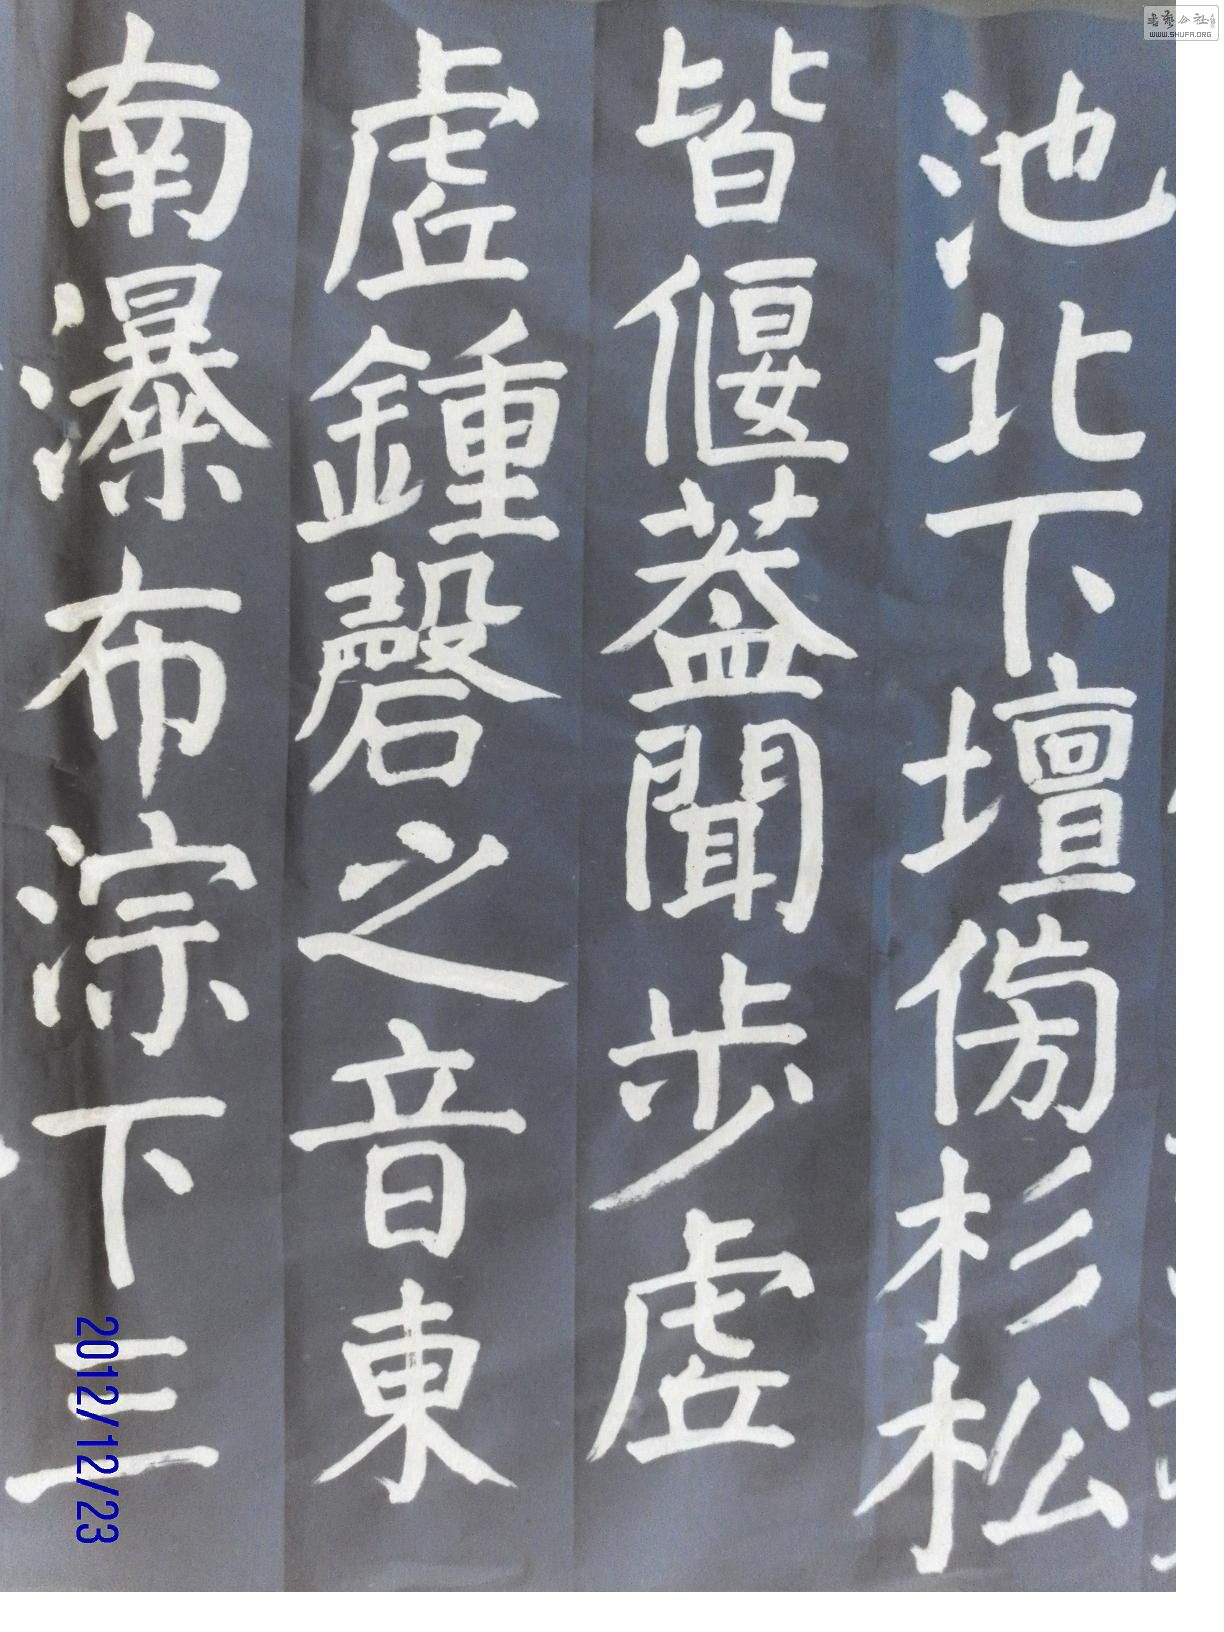 池北下壇傍杉松
皆偃蓋聞步虛
虛鍾磬之音東
南瀑布淙下三
2012/12/23
WWW.SHUFA.ORG